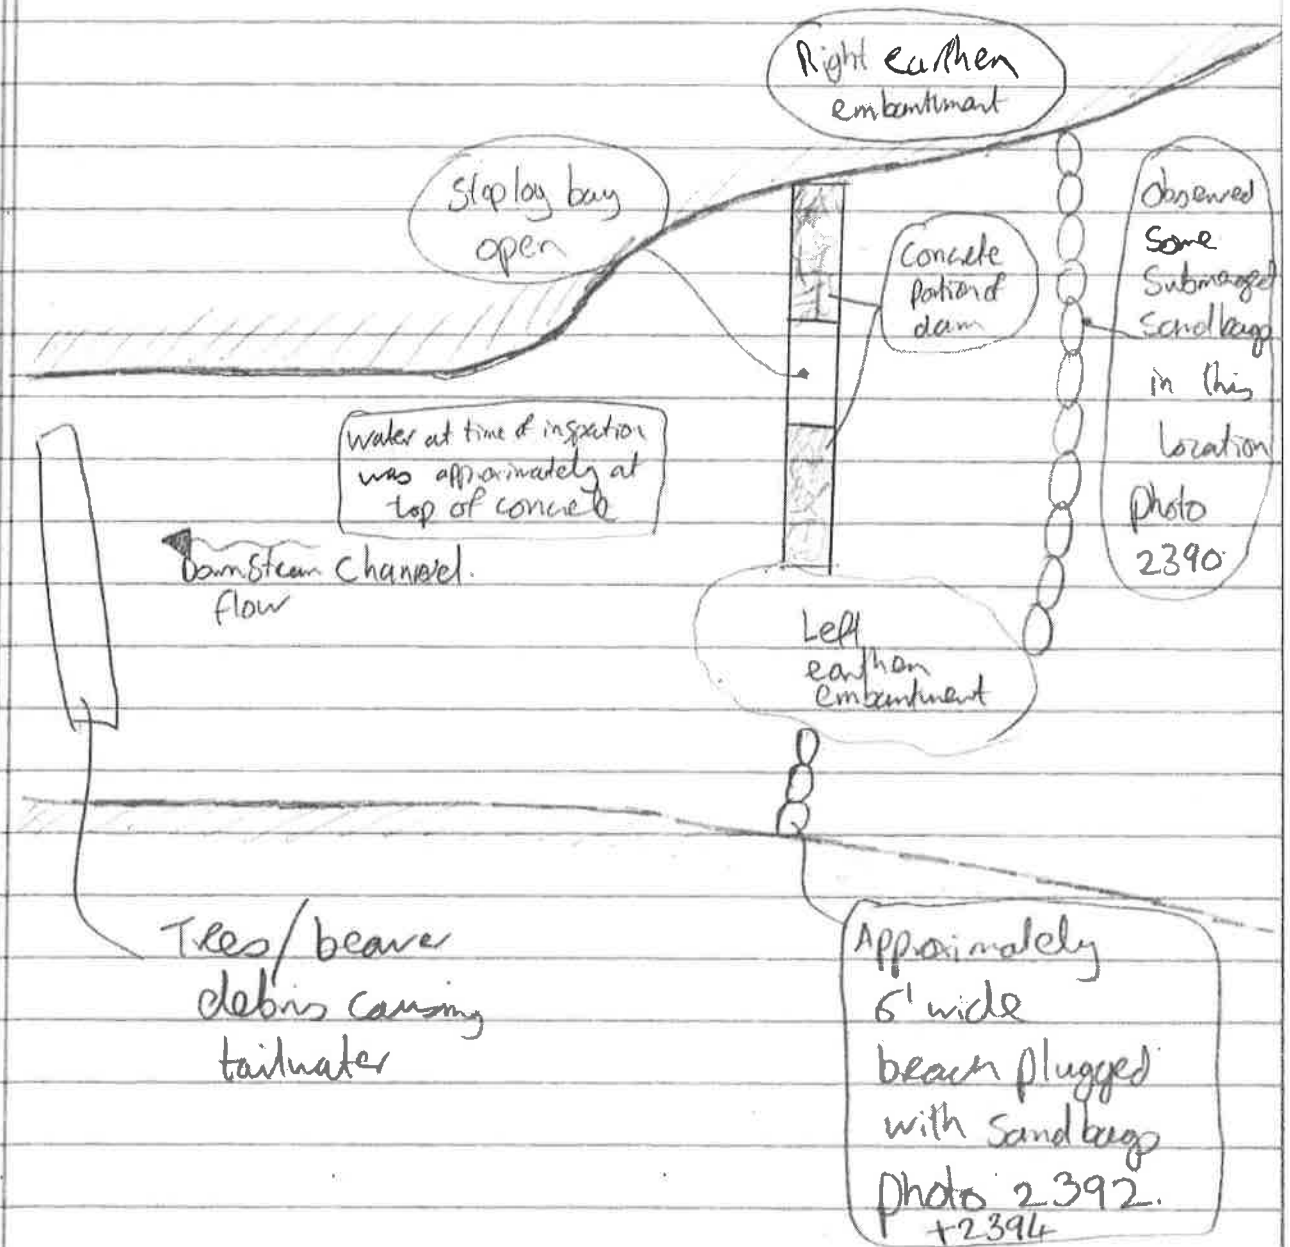 Right earthen
embankment
Stoplog bay
open
Observed
Some
Submerged
Sandbags
in this
Location
photo
2390
Concrete
Portion of
dam
water at time of inspection
was approximately at
top of concrete
DownStream Channel.
flow
Left
earthen
embankment
Trees/beaver
debris causing
tailwater
Approximately
6' wide
breach plugged
with Sandbags
photo 2392.
+2394